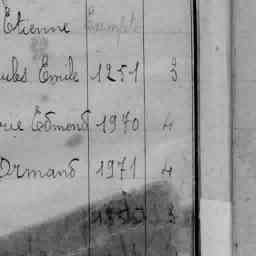 Etienne Exempté
ules Emile 1251 3
rie Edmond 1970 4
Ormand 1971 4
3